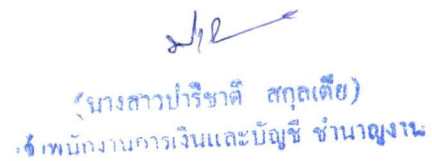 (นางสาวปาริชาติ สกุลเตีย)
เจ้าพนักงานการเงินและบัญชี ชำนาญงาน